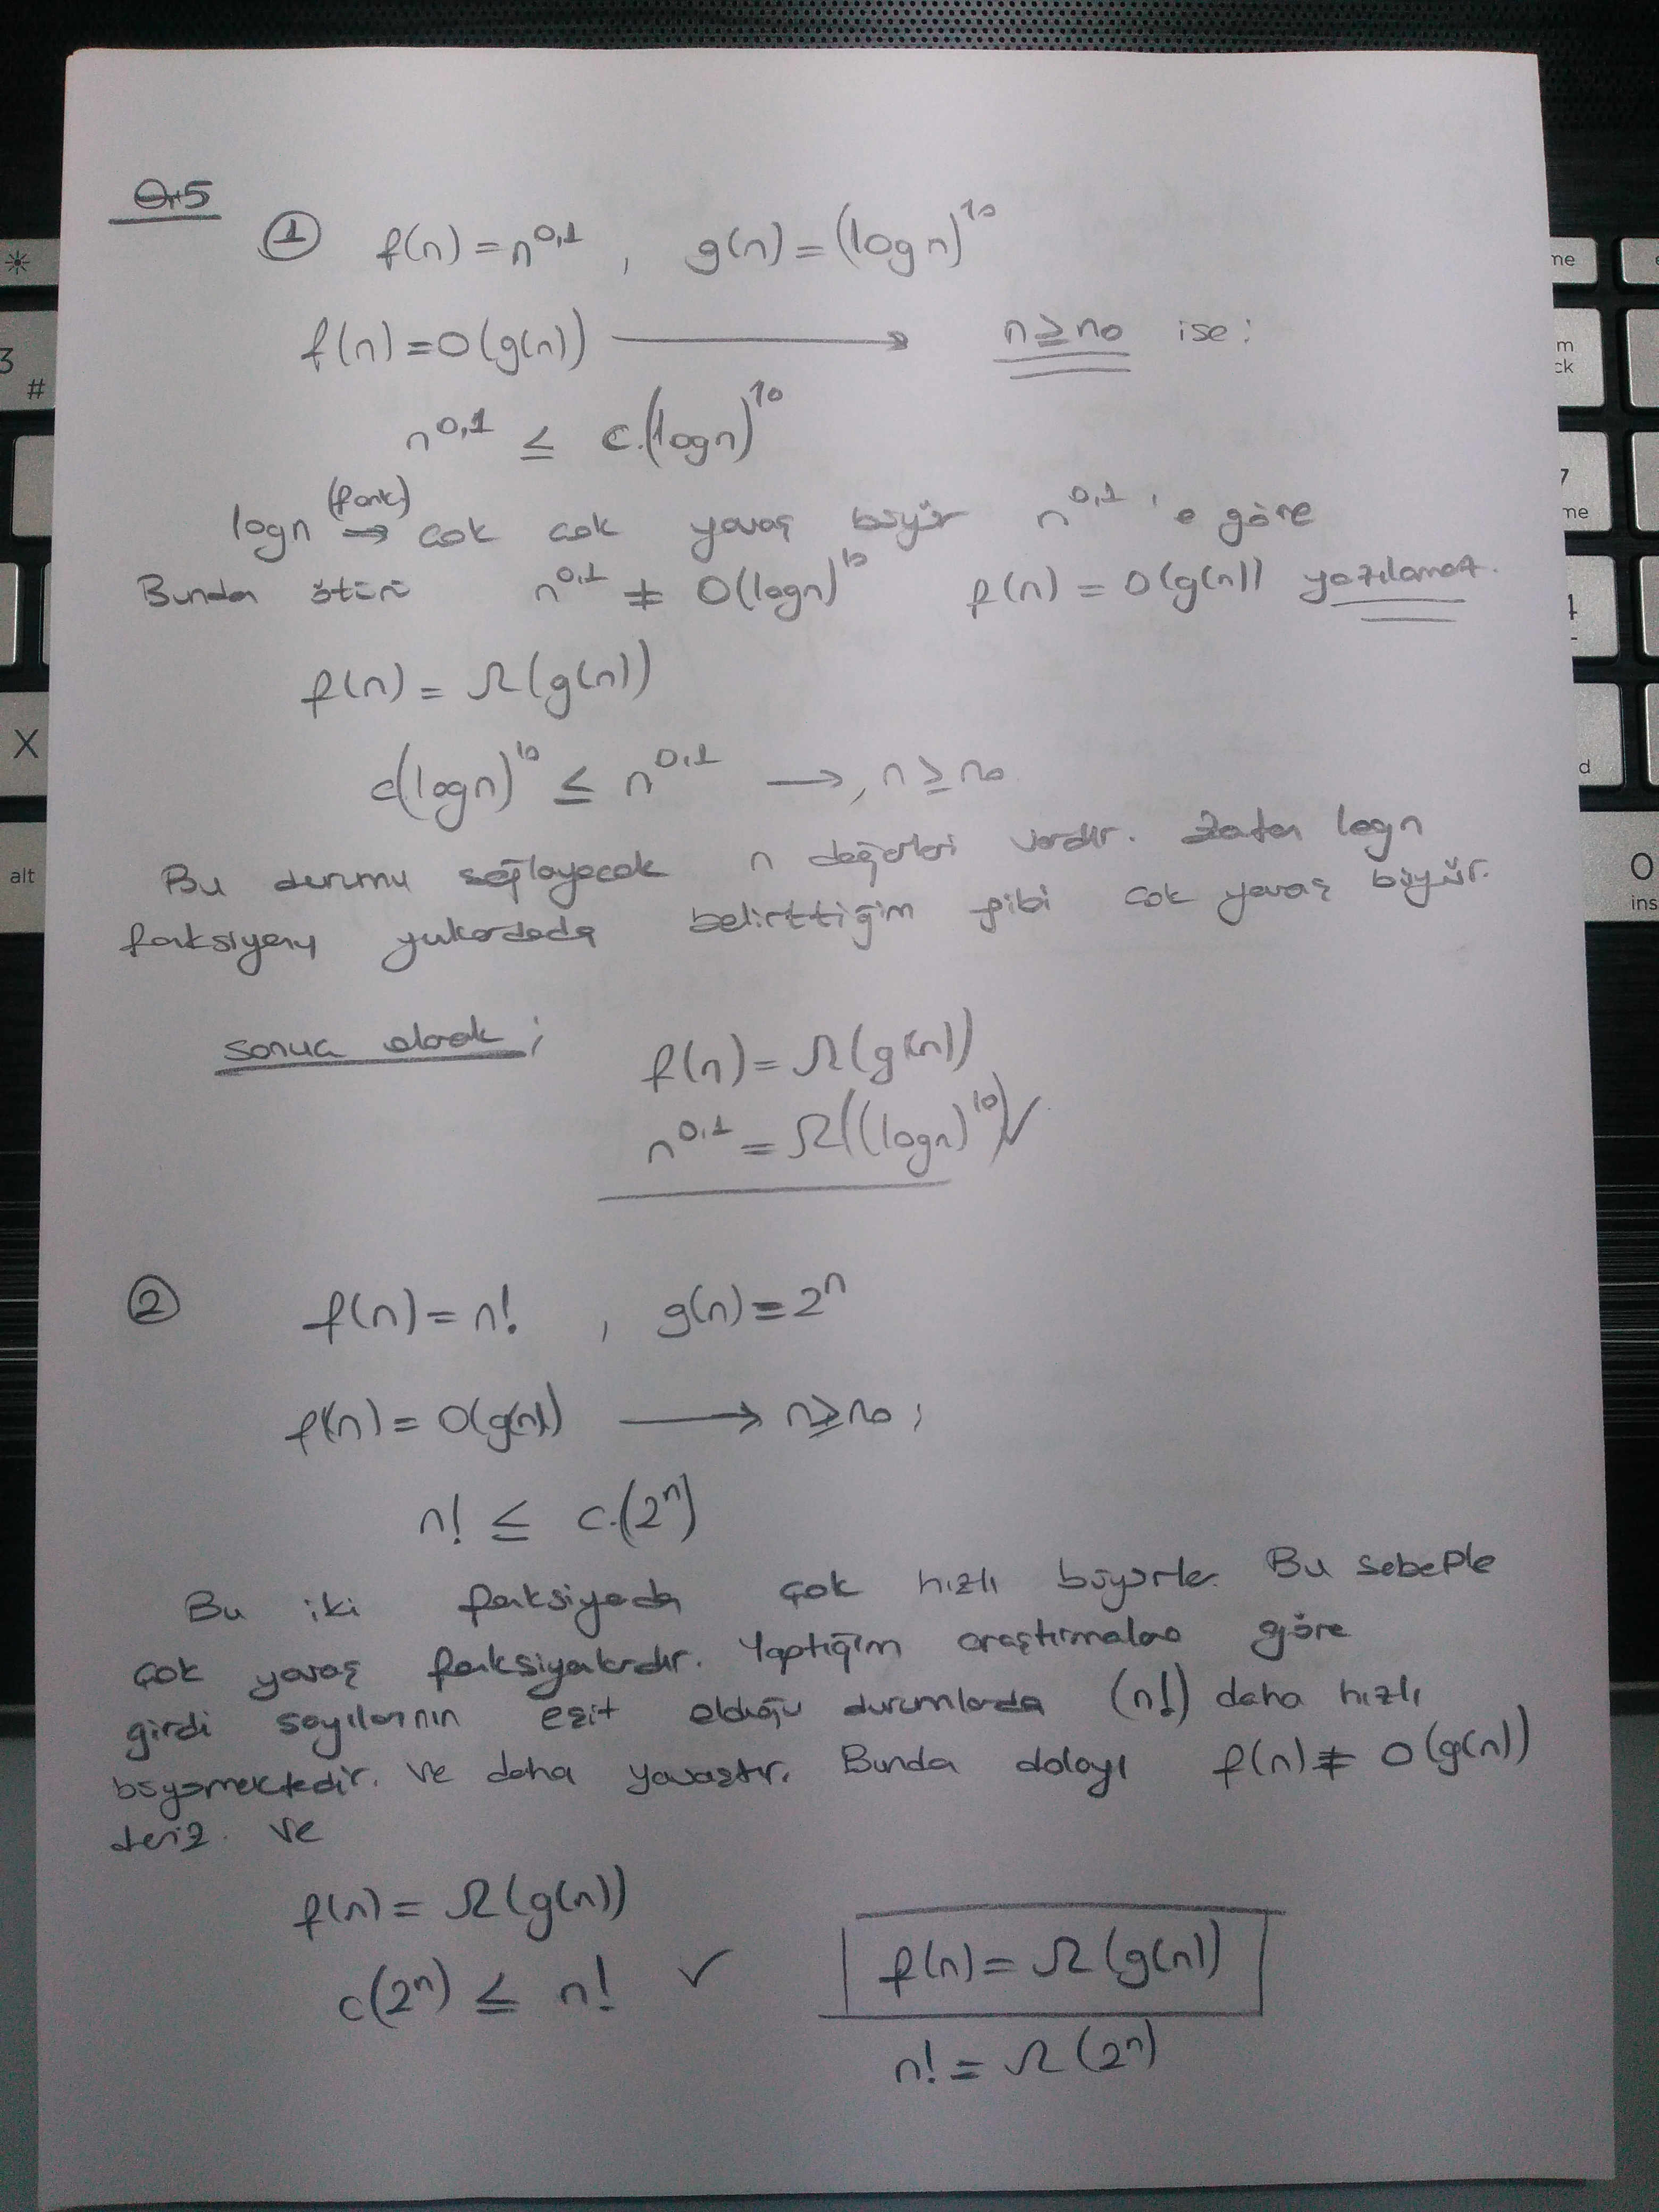 Q-5
① f(n) = n^0,1 , g(n) = (log n)^10
f(n) = O(g(n)) ⟶ n ≥ n0 ise:
n^0,1 ≤ c.(logn)^10
logn (fonk) → cok cok yavaş büyür n^0,1 'e göre
Bundan ötürü n^0,1 ≠ O(logn)^10 f(n) = O(g(n)) yazılamaz.
f(n) = Ω(g(n))
c(logn)^10 ≤ n^0,1 →, n ≥ n0
Bu durumu sağlayacak n değerleri vardır. Zaten logn
fonksiyonu yukardada belirttiğim gibi cok yavaş büyür.
sonuc olarak ;
f(n) = Ω(g(n))
n^0,1 = Ω((logn)^10) ✓
② f(n) = n! , g(n) = 2^n
f(n) = O(g(n)) ⟶ n ≥ n0 ;
n! ≤ c.(2^n)
Bu iki fonksiyonda çok hızlı büyürler. Bu sebeple
çok yavaş fonksiyonlardır. Yaptığım araştırmalara göre
girdi sayılarının eşit olduğu durumlarda (n!) daha hızlı
büyümektedir. ve daha yavaştır. Bundan dolayı f(n) ≠ O(g(n))
deriz. ve
f(n) = Ω(g(n))
c(2^n) ≤ n! ✓
f(n) = Ω(g(n))
n! = Ω(2^n)
3
#
X
alt
7
4
d
O
ins